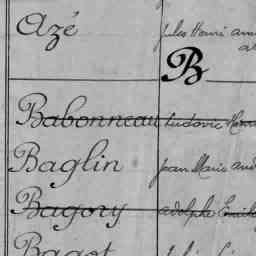 Azé Jules Henri
B
Babonneau Ludovic
Baglin Jean Marie
Bagory Adolphe Emile
Bagot